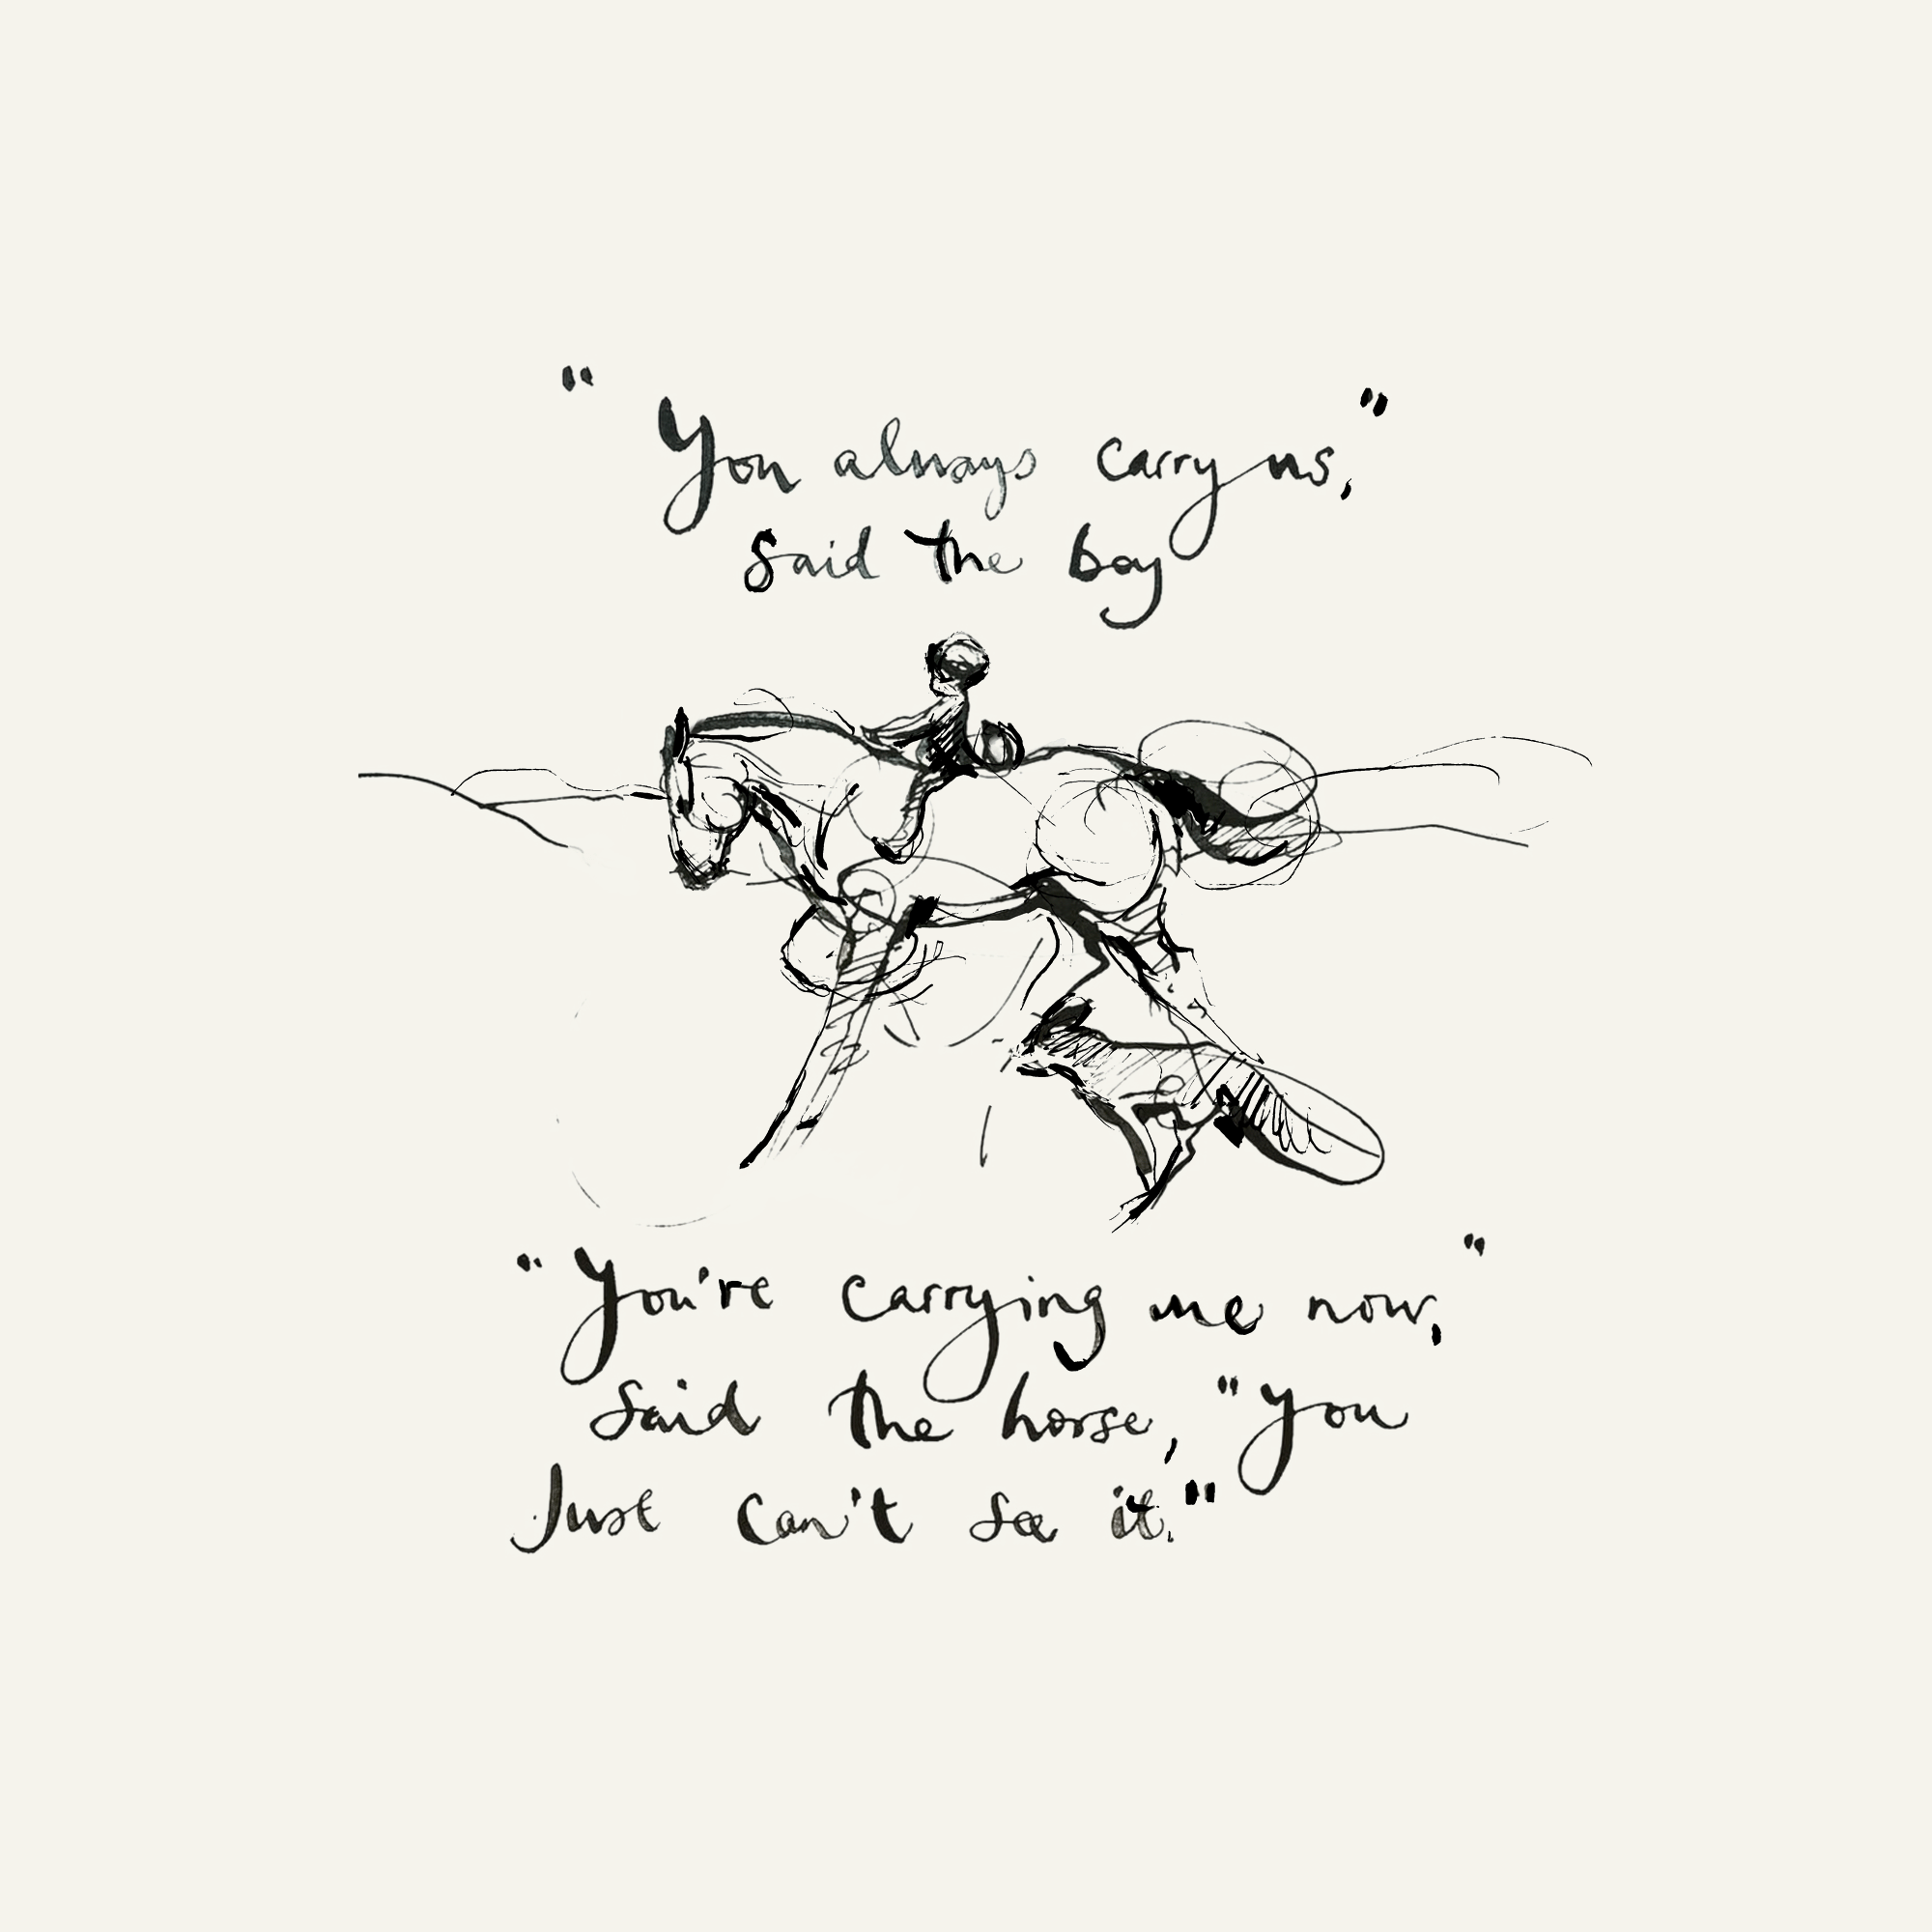 "You always carry us,"
said the boy
"You're carrying me now,"
said the horse, "you
Just can't see it."